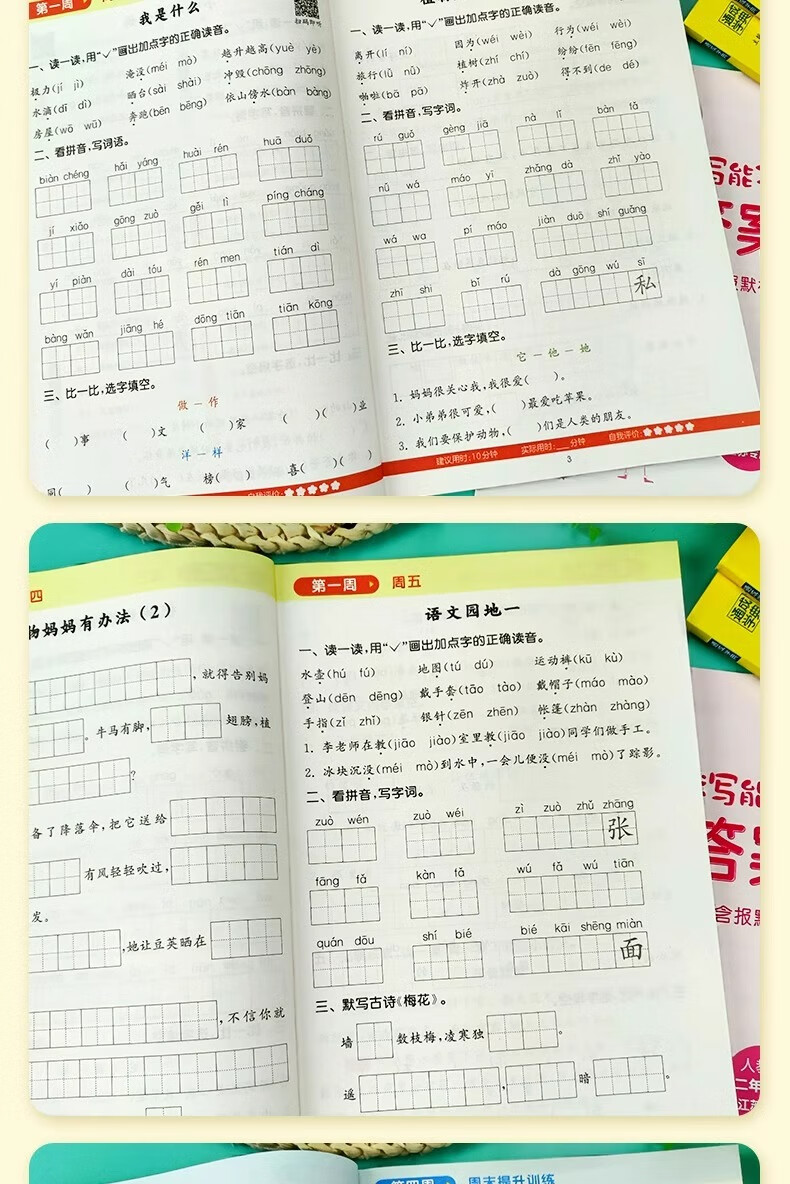 第一周
我是什么
扫码即听
一、读一读,用“√”画出加点字的正确读音。
极力(jí jì) 淹没(méi mò) 越升越高(yuè yè)
水滴(dī dì) 晒台(sài shài) 冲毁(chōng zhōng)
房屋(wō wū) 奔跑(bēn bēng) 依山傍水(bàn bàng)
二、看拼音,写词语。
biàn chéng hǎi yáng huài rén huā duǒ
jí xiǎo gōng zuò gěi lì píng cháng
yí piàn dài tóu rén men tián dì
bàng wǎn jiāng hé dōng tiān tiān kōng
三、比一比,选字填空。
做 — 作
( )事 ( )文 ( )家 ( )( )业
洋 — 样
同( ) ( )气 榜( ) 喜( )( )
自我评价:
一、读一读,用“√”画出加点字的正确读音。
离开(lí ní) 因为(wéi wèi) 行为(wéi wèi)
旅行(lǚ nǚ) 植树(zhí chí) 纷纷(fēn fēng)
啪啦(bā pā) 炸开(zhà zuò) 得不到(de dé)
二、看拼音,写字词。
rú guǒ gèng jiā nà lǐ bàn fǎ
nǚ wá máo yī zhǎng dà zhī yào
wá wa pí máo jiàn duō shí guǎng
zhī shi bǐ rú dà gōng wú sī
私
三、比一比,选字填空。
它 — 他 — 她
1. 妈妈很关心我,我很爱( )。
2. 小弟弟很可爱,( )最爱吃苹果。
3. 我们要保护动物,( )们是人类的朋友。
建议用时:10分钟 实际用时:___分钟 自我评价:
3
四
物妈妈有办法(2)
,就得告别妈
。牛马有脚, 翅膀,植
?
备了降落伞,把它送给
有风轻轻吹过,
发。
,她让豆荚晒在
,不信你就
第一周 周五
语文园地一
一、读一读,用“√”画出加点字的正确读音。
水壶(hú fú) 地图(tú dú) 运动裤(kū kù)
登山(dēn dēng) 戴手套(tāo tào) 戴帽子(máo mào)
手指(zǐ zhǐ) 银针(zēn zhēn) 帐篷(zhàn zhàng)
1. 李老师在教(jiāo jiào)室里教(jiāo jiào)同学们做手工。
2. 冰块沉没(méi mò)到水中,一会儿便没(méi mò)了踪影。
二、看拼音,写字词。
zuò wén zuò wéi zì zuò zhǔ zhāng
张
fāng fǎ kàn fǎ wú fǎ wú tiān
quán dōu shí bié bié kāi shēng miàn
面
三、默写古诗《梅花》。
墙 数枝梅,凌寒独 。
遥 , 暗 。
写能
含报默
人教
二年
江苏
第四周 周末提升训练